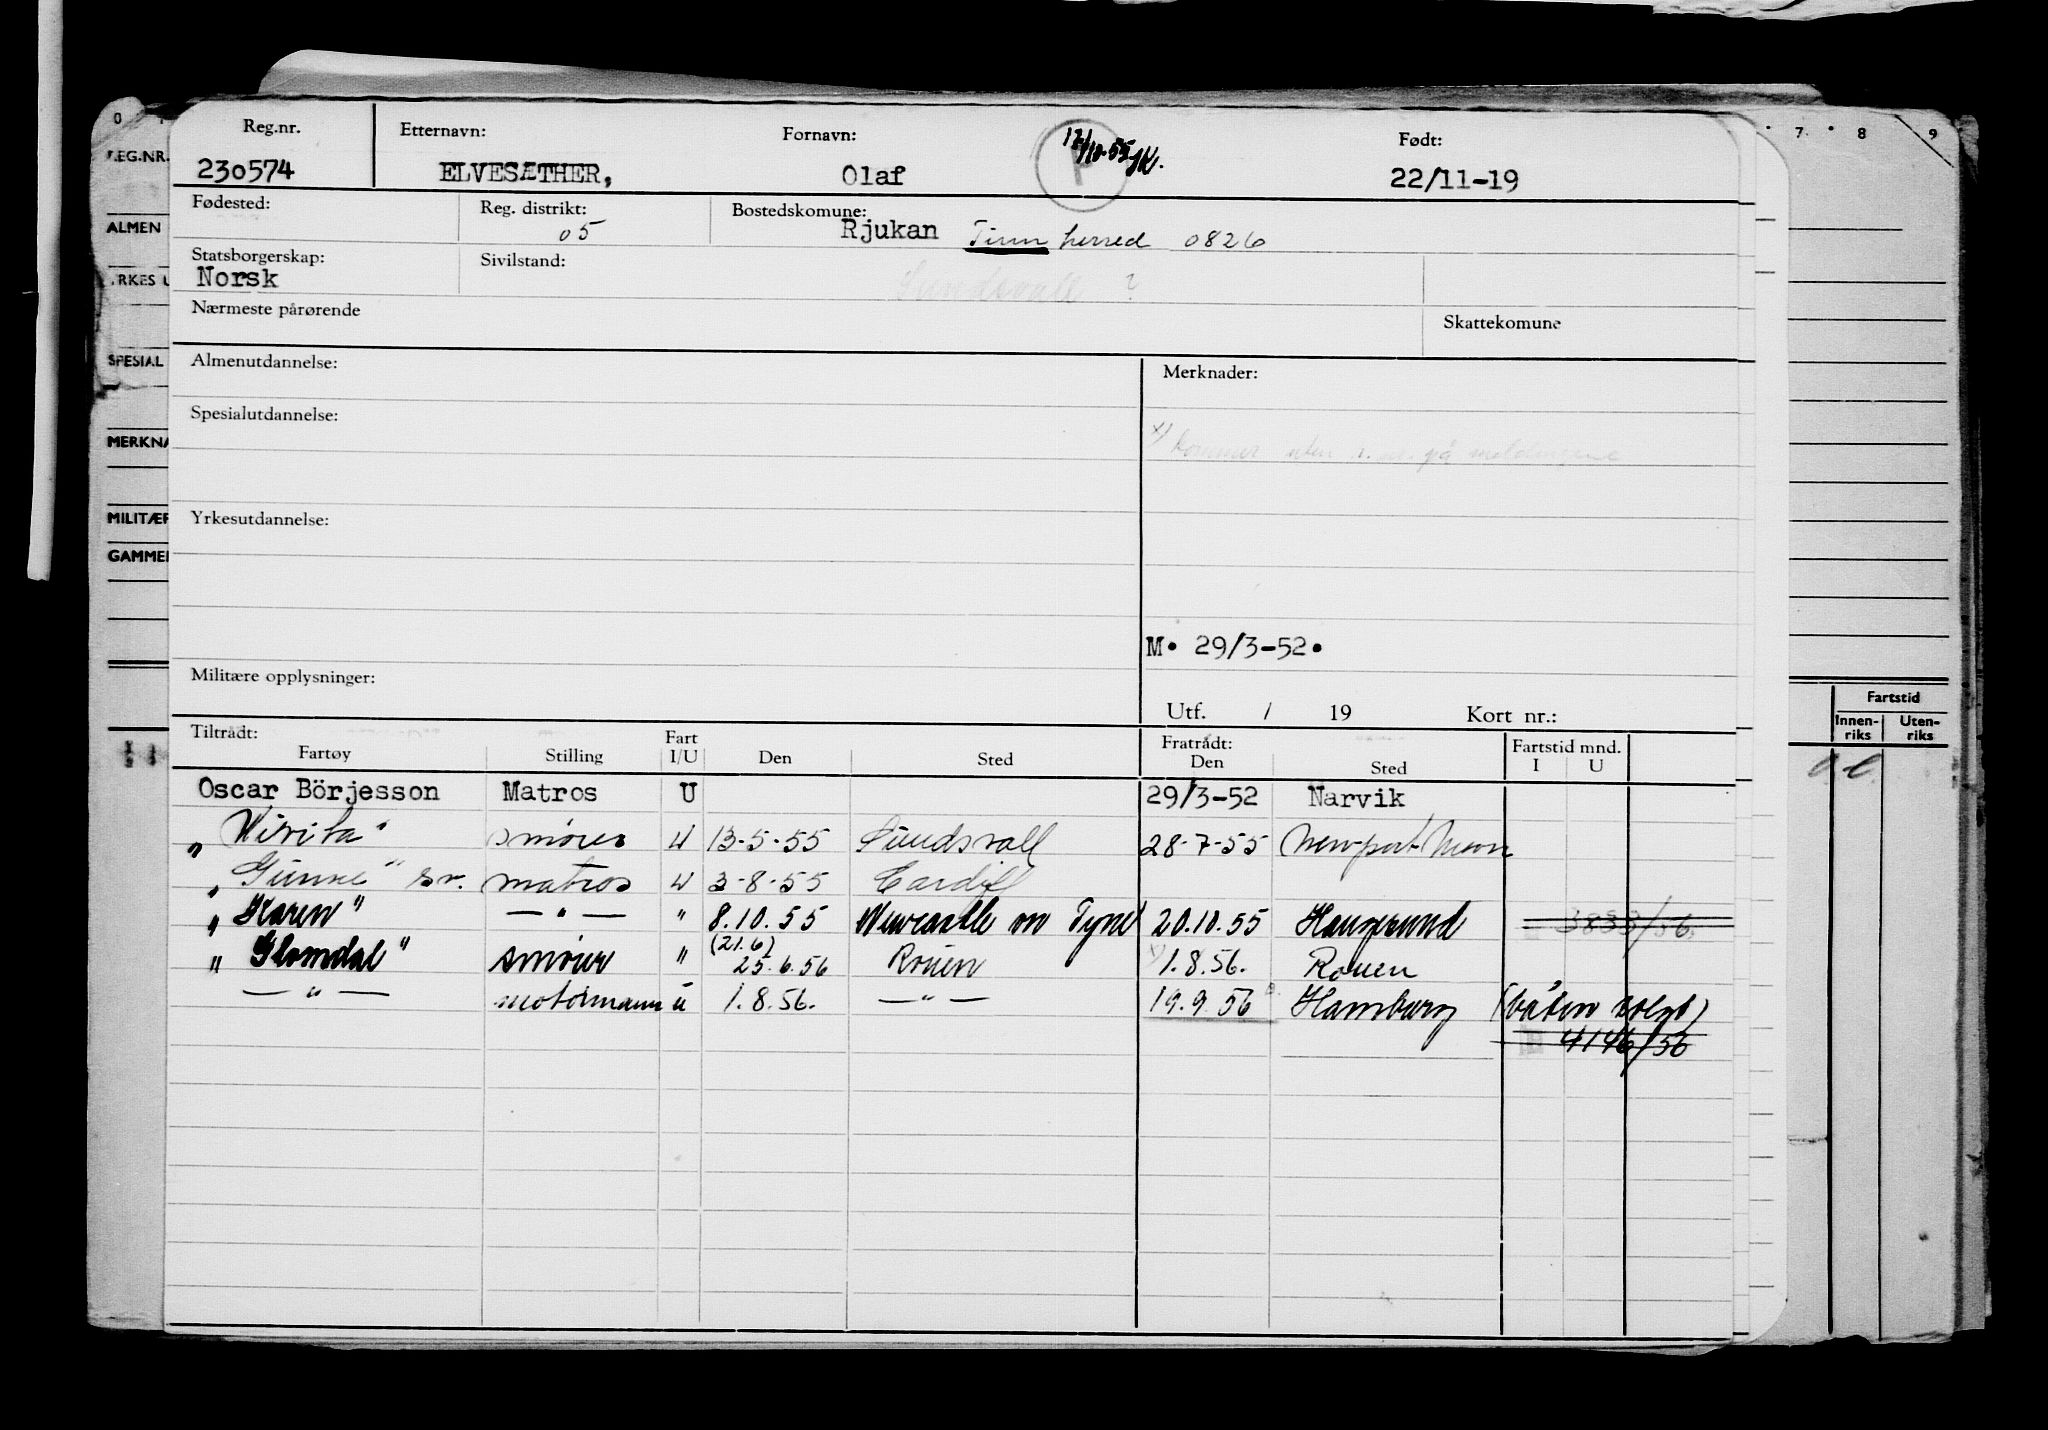 0 7 8 9
REG.NR.
ALMEN
SPESIAL
MERKNA
MILITÆR
GAMMEL
Fartstid
Innen-riks Uten-riks
Reg.nr. Etternavn: Fornavn: Født:
230574 ELVESÆTHER, Olaf 22/11-19
Fødested: Reg. distrikt: 05 Bostedskomune: Rjukan Tinn herred 0826
Statsborgerskap: Norsk Sivilstand: Sundsvall ?
Nærmeste pårørende Skattekomune
Almenutdannelse: Merknader:
Spesialutdannelse:
x) kommer uten r. nr. på meldingene
Yrkesutdannelse:
M. 29/3-52.
Militære opplysninger:
Utf. / 19 Kort nr.:
Tiltrådt: Fratrådt:
Fartøy Stilling Fart I/U Den Sted Den Sted Fartstid mnd. I U
Oscar Börjesson Matros U 29/3-52 Narvik
" smører U 13-5-55 Sundsvall 28-7-55 Newport Mon
" " sv. matros U 3-8-55 Cardiff
" Karen" — " — " 8.10.55 Newcastle on Tyne 20.10.55 Haugesund 3833/56
" Glomdal" smører " (21.6) 25.6.56 Rouen x) 1.8.56. Rouen
— " — motormann u 1.8.56. — " — 19.9.56 Hamburg (båten solgt)
4146/56